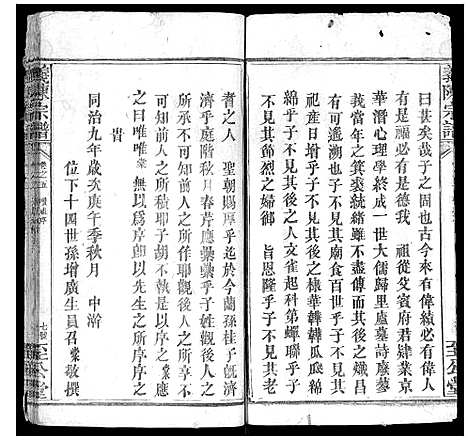 義陳宗譜
曰甚矣哉子之固也古今來有偉績必有
是福必有是德我 祖從艾賓府君肄業京
華潛心理學終成一世大儒歸里廬墓詩廬蓼
年之箕裘統緒雖不盡傳而其後之熾昌
有可遞溯也子不見其廟食百世乎子不見其
祀產日增乎子不見其後之棣華轉轉瓜瓜綿
綿乎子不見其後之人文雀起科第蟬聯乎子
不見其節烈之婦御 旨恩隆乎子不見其老
者之人 聖朝賜厚乎迄於今蘭孫桂子旣濟
濟乎庭階秋月春芹應纍纍乎子姓觀後人之
不知前人之所作耶觀後人之
前人之所積耶子胡不執是以應
之曰唯唯 無以爲序卽以先生之所序序之
昔
同治九年歲次庚午季秋月 中澣
位下十四世孫增廣生員召棠敬撰
義陳宗譜
卷之五
七
至公堂